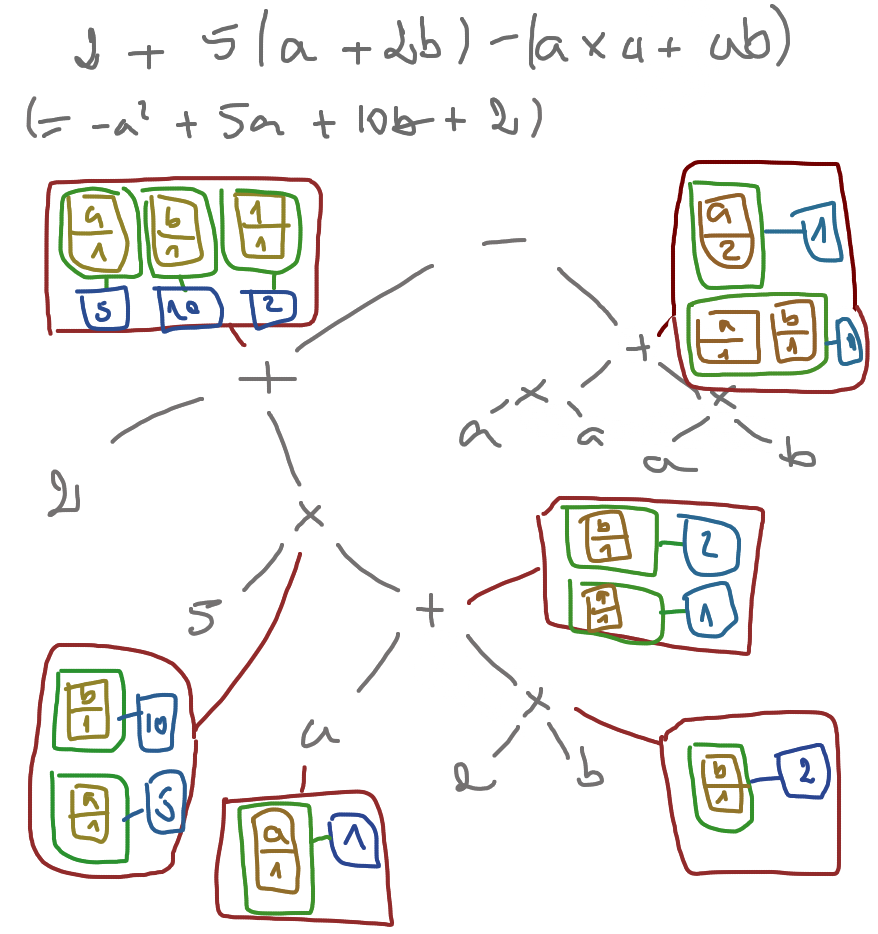 2 + 5(a + 2b) - (a × a + ab)
(= -a² + 5a + 10b + 2)
a b 1
1 1 1
5 10 2
a
2
1
a b
1 1
1
-
+ +
× ×
a a
a b
2
×
b
1
2
a
1
1
5 +
b
1
10
a
1
5
a ×
2 b
a
1
1
b
1
2